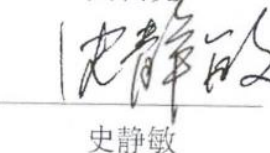 史静敏
史静敏